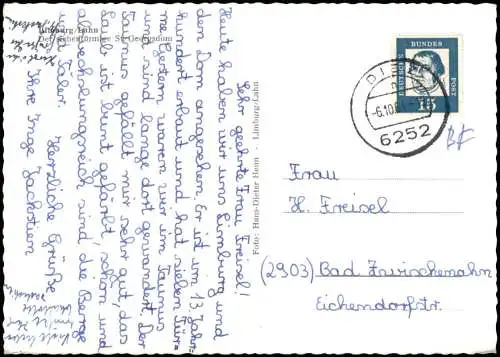 Limburg/Lahn
Der siebentürmige St. Georgsdom
Sehr geehrte Frau Freisel!
Heute haben wir uns Limburg und
den Dom angesehen. Er ist im 13. Jahr-
hundert erbaut und hat sieben Tür-
me. Gestern waren wir im Taunus
und sind lange dort gewandert. Der
Taunus gefällt mir sehr gut, das
Laub ist bunt gefärbt, schön und
abwechslungsreich sind die Berge
und Täler.
Herzliche Grüße
Ihre Inge Jackstien
Foto: Hans-Dieter Henn · Limburg-Lahn
DEUTSCHE BUNDES POST
15
DI
-6.10.6
6252
Frau
H. Freisel
(2903) Bad Zwischenahn
Eichendorfstr.